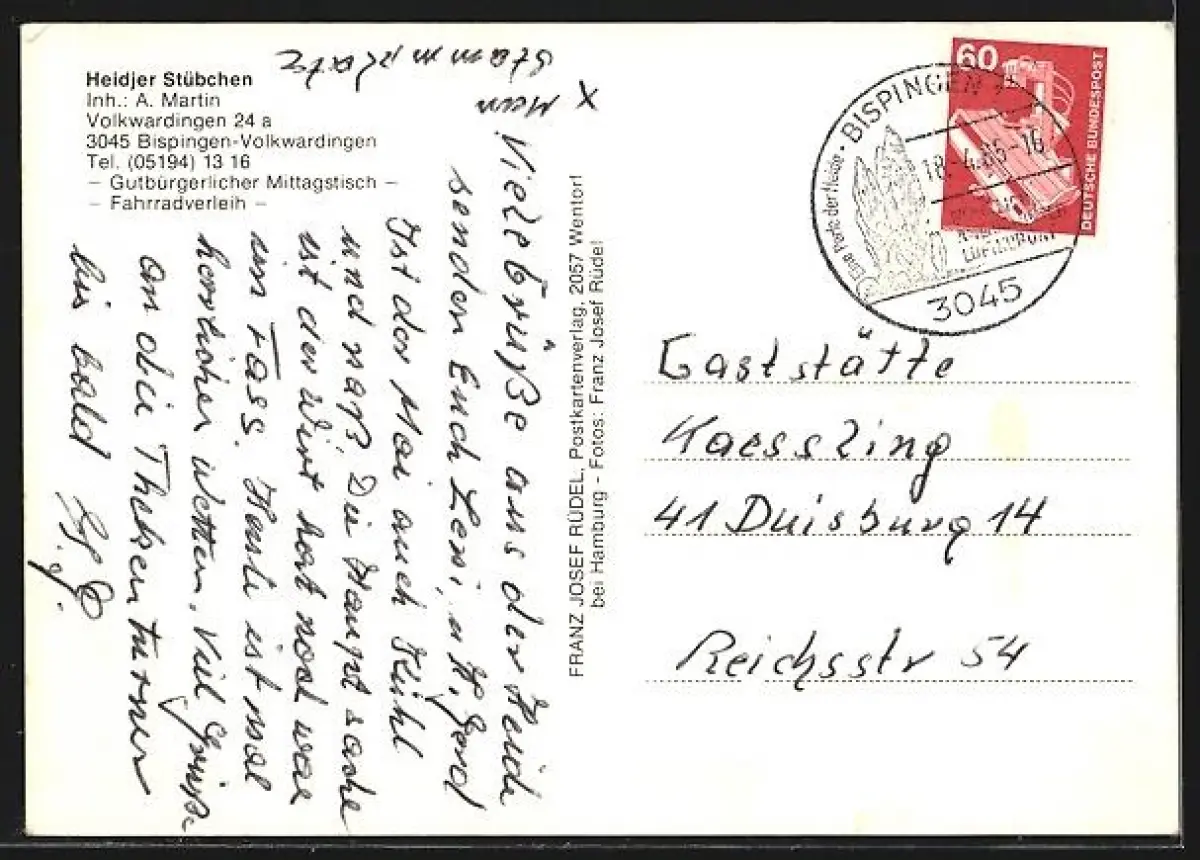 Heidjer Stübchen
Inh.: A. Martin
Volkwardingen 24 a
3045 Bispingen-Volkwardingen
Tel. (05194) 13 16
– Gutbürgerlicher Mittagstisch –
– Fahrradverleih –
X Mein
Stammplatz
Viele Grüße aus der Heide
senden Euch Leni, u H. Gerd
Ist der Mai auch Kühl
und naß. Die Haupt sache
ist der Wirt hat noch was
im Fass. Heute ist mal
herrlicher Wetter. Viel Grüße
an die Theken turner
bis bald
FRANZ JOSEF RÜDEL, Postkartenverlag, 2057 Wentorf
bei Hamburg - Fotos: Franz Josef Rüdel
60
DEUTSCHE BUNDESPOST
BISPINGEN
Eine Perle der Heide
LUFTKURORT
3045
Gaststätte
Kaessling
41 Duisburg 14
Reichsstr 54